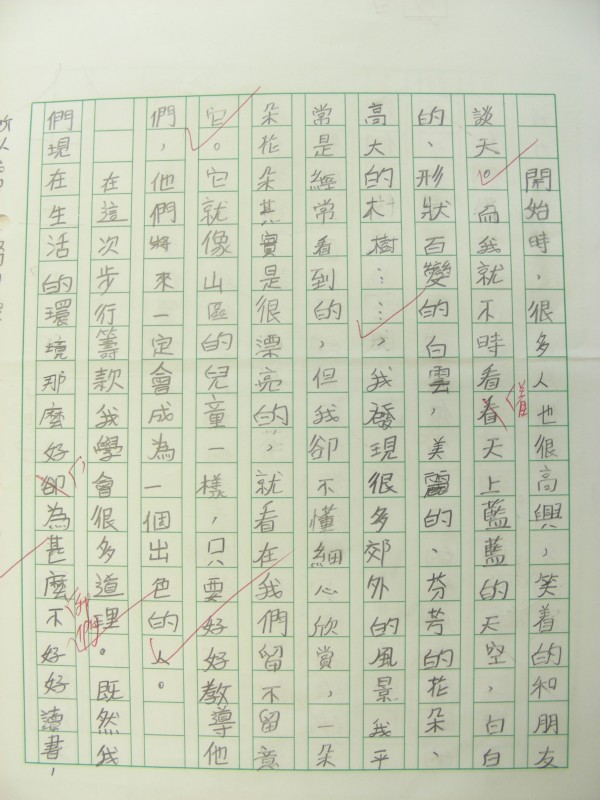 開始時，很多人也很高興，笑着的和朋友
談天。而我就不時看看天上藍藍的天空，白白
的、形狀百變的白雲，美麗的、芬芳的花朵、
高大的木樹……，我發現很多郊外的風景我平
常是經常看到的，但我卻不懂細心欣賞，一朵
朵花朵其實是很漂亮的，就看在我們留不留意
它。它就像山區的兒童一樣，只要好好教導他
們，他們將來一定會成為一個出色的人。
在這次步行籌款我學會很多道理。既然我
們現在生活的環境那麼好卻為甚麼不好好讀書，